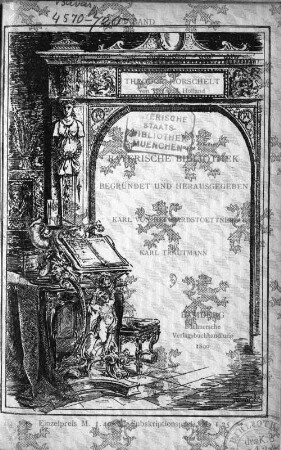 Bavar.
4570-1/20 BAND
THEODOR HORSCHELT
von Holland
BAYERISCHE
STAATS-
BIBLIOTHEK
MUENCHEN
BAYERISCHE BIBLIOTHEK
BEGRÜNDET UND HERAUSGEGEBEN
KARL VON REINHARDSTÖTTNER
KARL TRAUTMANN
BAMBERG
Buchnersche
Verlagsbuchhandlung
1890
Einzelpreis M. 1.40 Subskriptionspreis M. 1.25